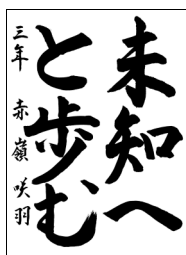 未知へ
と歩む
三年 赤嶺 咲羽